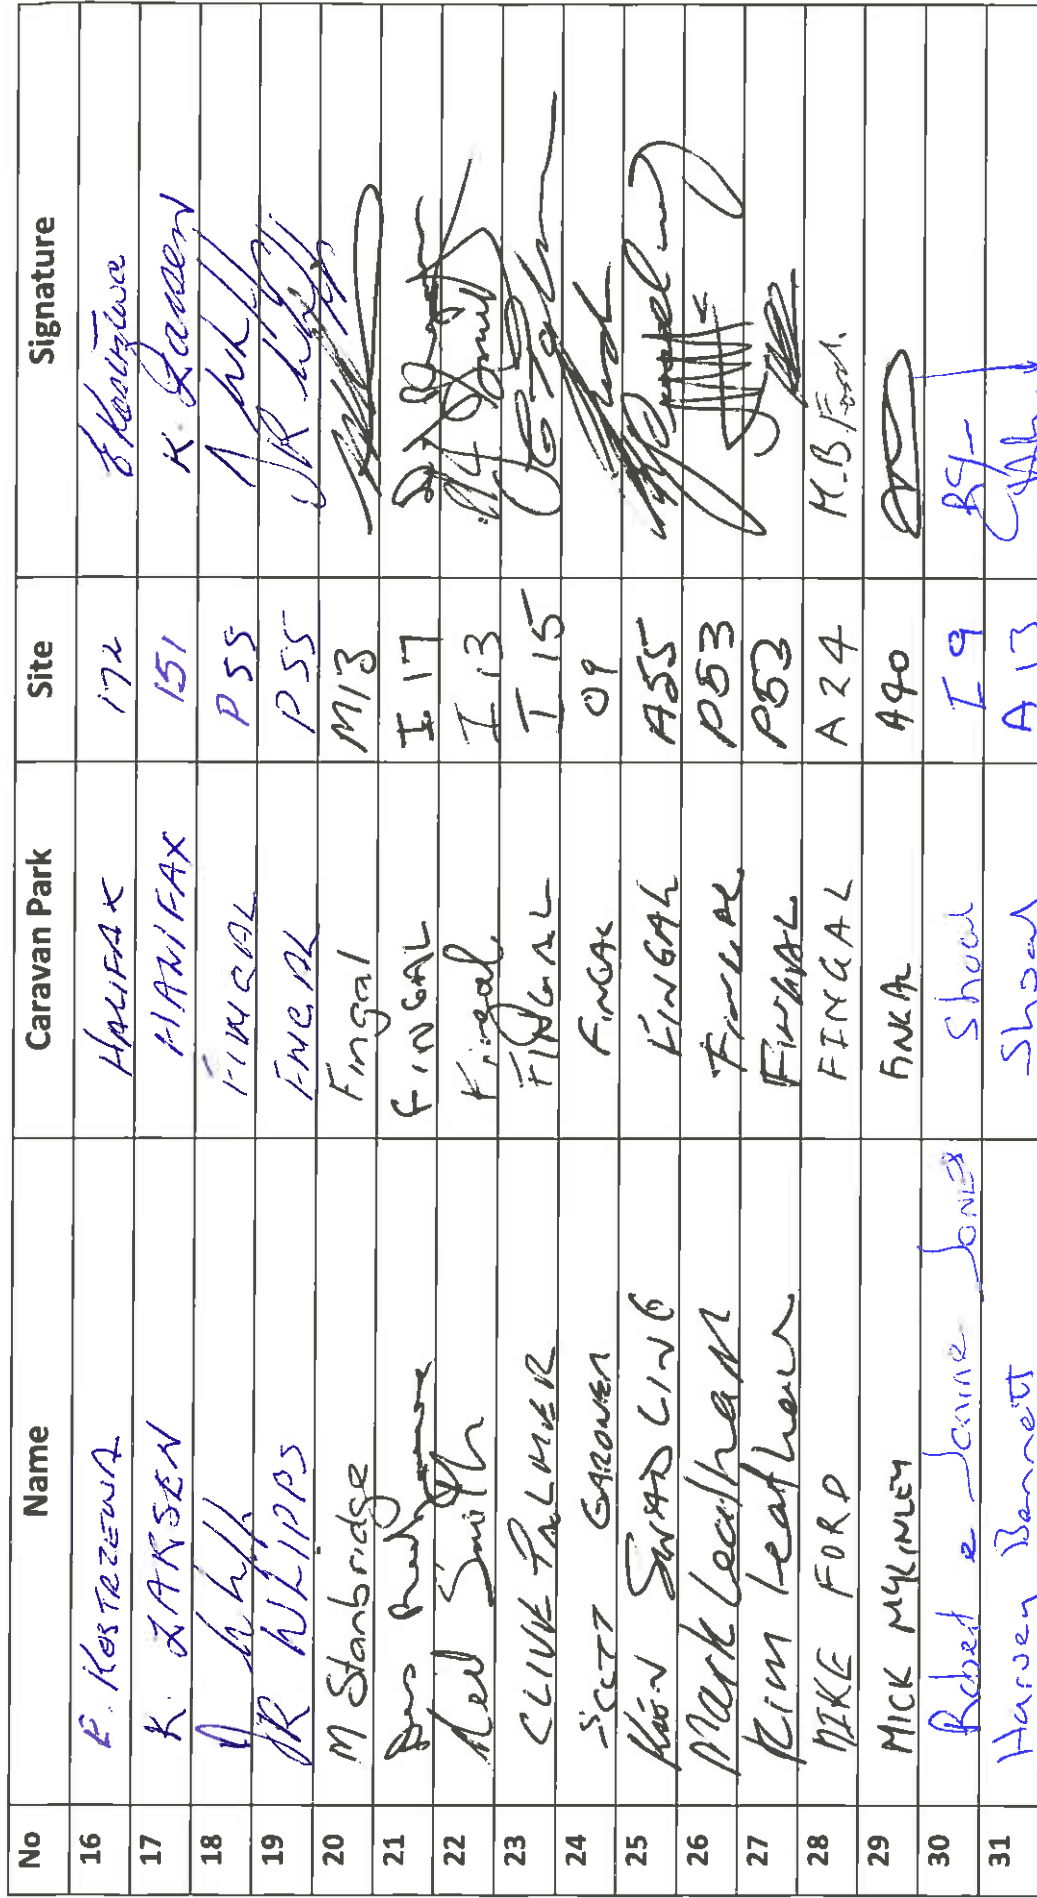 No Name Caravan Park Site Signature
16 E. KOSTRZEWA HALIFAX 172 E Kostrzewa
17 K. LARSEN HANIFAX 151 K Larsen
18 FINGAL P55
19 JR WHIPPS FINGAL P55
20 M Stanbridge Fingal M13
21 FINGAL I 17
22 Smith Fingal I 13
23 CLIVE PALMER FINGAL I 15
24 SCOTT GARDNER FINGAL 09
25 SWADLING FINGAL A55
26 Mark Leatham FINGAL P53
27 Kim FINGAL P53
28 MIKE FORD FINGAL A24 M.B Ford.
29 MICK McKINLEY FINKAL A40
30 Robert e Janine JONES Shoal I 9
31 Harvey Bennett Shoal A 13